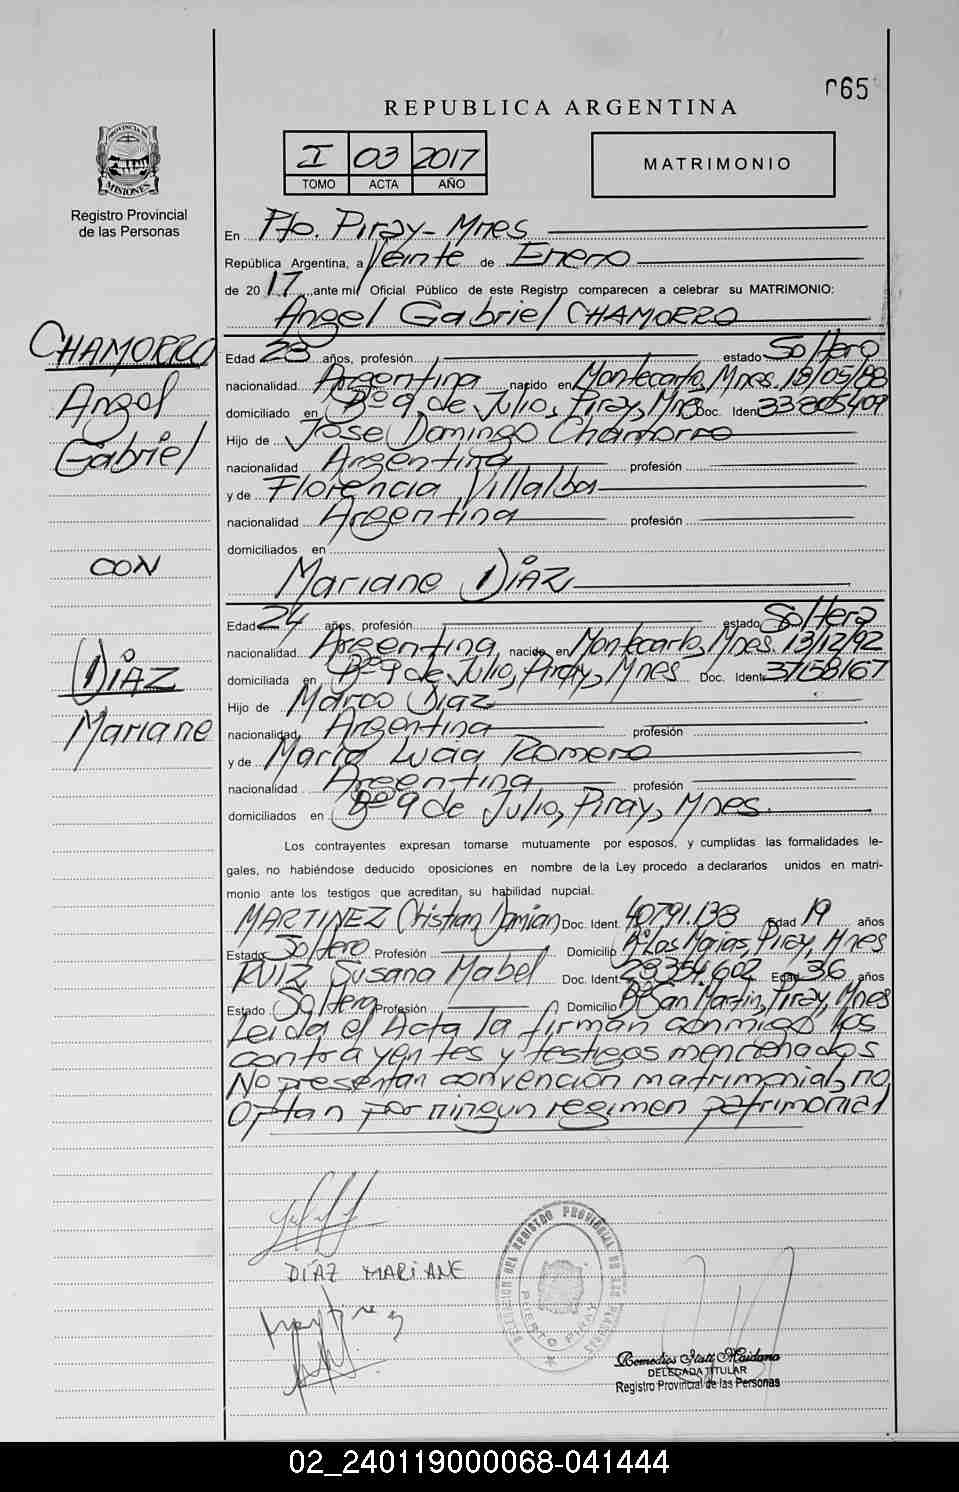 065
REPUBLICA ARGENTINA
I 03 2017
TOMO ACTA AÑO
MATRIMONIO
PROVINCIA DE
MISIONES
Registro Provincial
de las Personas
En Pto. Piray - Mnes
República Argentina, a Veinte de Enero
de 2017, ante mi, Oficial Público de este Registro comparecen a celebrar su MATRIMONIO:
Angel Gabriel CHAMORRO
CHAMORRO
Angel
Gabriel
CON
DiAZ
Mariane
Edad 28 años, profesión estado Soltero
nacionalidad Argentina nacido en Montecarlo, Mnes. 18/05/88
domiciliado en Bº 9 de Julio, Piray, Mnes Doc. Ident. 33805409
Hijo de Jose Domingo Chamorro
nacionalidad Argentina profesión
y de Florencia Villalba
nacionalidad Argentina profesión
domiciliados en
Mariane DiAZ
Edad 24 años, profesión estado Soltera
nacionalidad Argentina, nacida en Montecarlo, Mnes. 13/12/92
domiciliada en Bº 9 de Julio, Piray, Mnes Doc. Ident. 37158167
Hijo de Marco Diaz
nacionalidad Argentina profesión
y de Maria Lucia Romero
nacionalidad Argentina profesión
domiciliados en Bº 9 de Julio, Piray, Mnes.
Los contrayentes expresan tomarse mutuamente por esposos, y cumplidas las formalidades le-
gales, no habiéndose deducido oposiciones en nombre de la Ley procedo a declararlos unidos en matri-
monio ante los testigos que acreditan, su habilidad nupcial.
MARTINEZ Christian Damian Doc. Ident. 40791.138 Edad 19 años
Estado Soltero Profesión Domicilio Bº Las Marias, Piray, Mnes
RUIZ Susana Mabel Doc. Ident. 28354602 Edad 36 años
Estado Soltera Profesión Domicilio Bº San Martin, Piray, Mnes
Leida el Acta la firman conmigo los
contrayentes y testigos mencionados
No presentan convención matrimonial, no
Optan por ningun regimen patrimonial
DiAZ MARiANE
DELEGACION DEL REGISTRO PROVINCIAL DE LAS PERSONAS
PUERTO PIRAY
Remedios Itati Maidana
DELEGADA TITULAR
Registro Provincial de las Personas
02_240119000068-041444